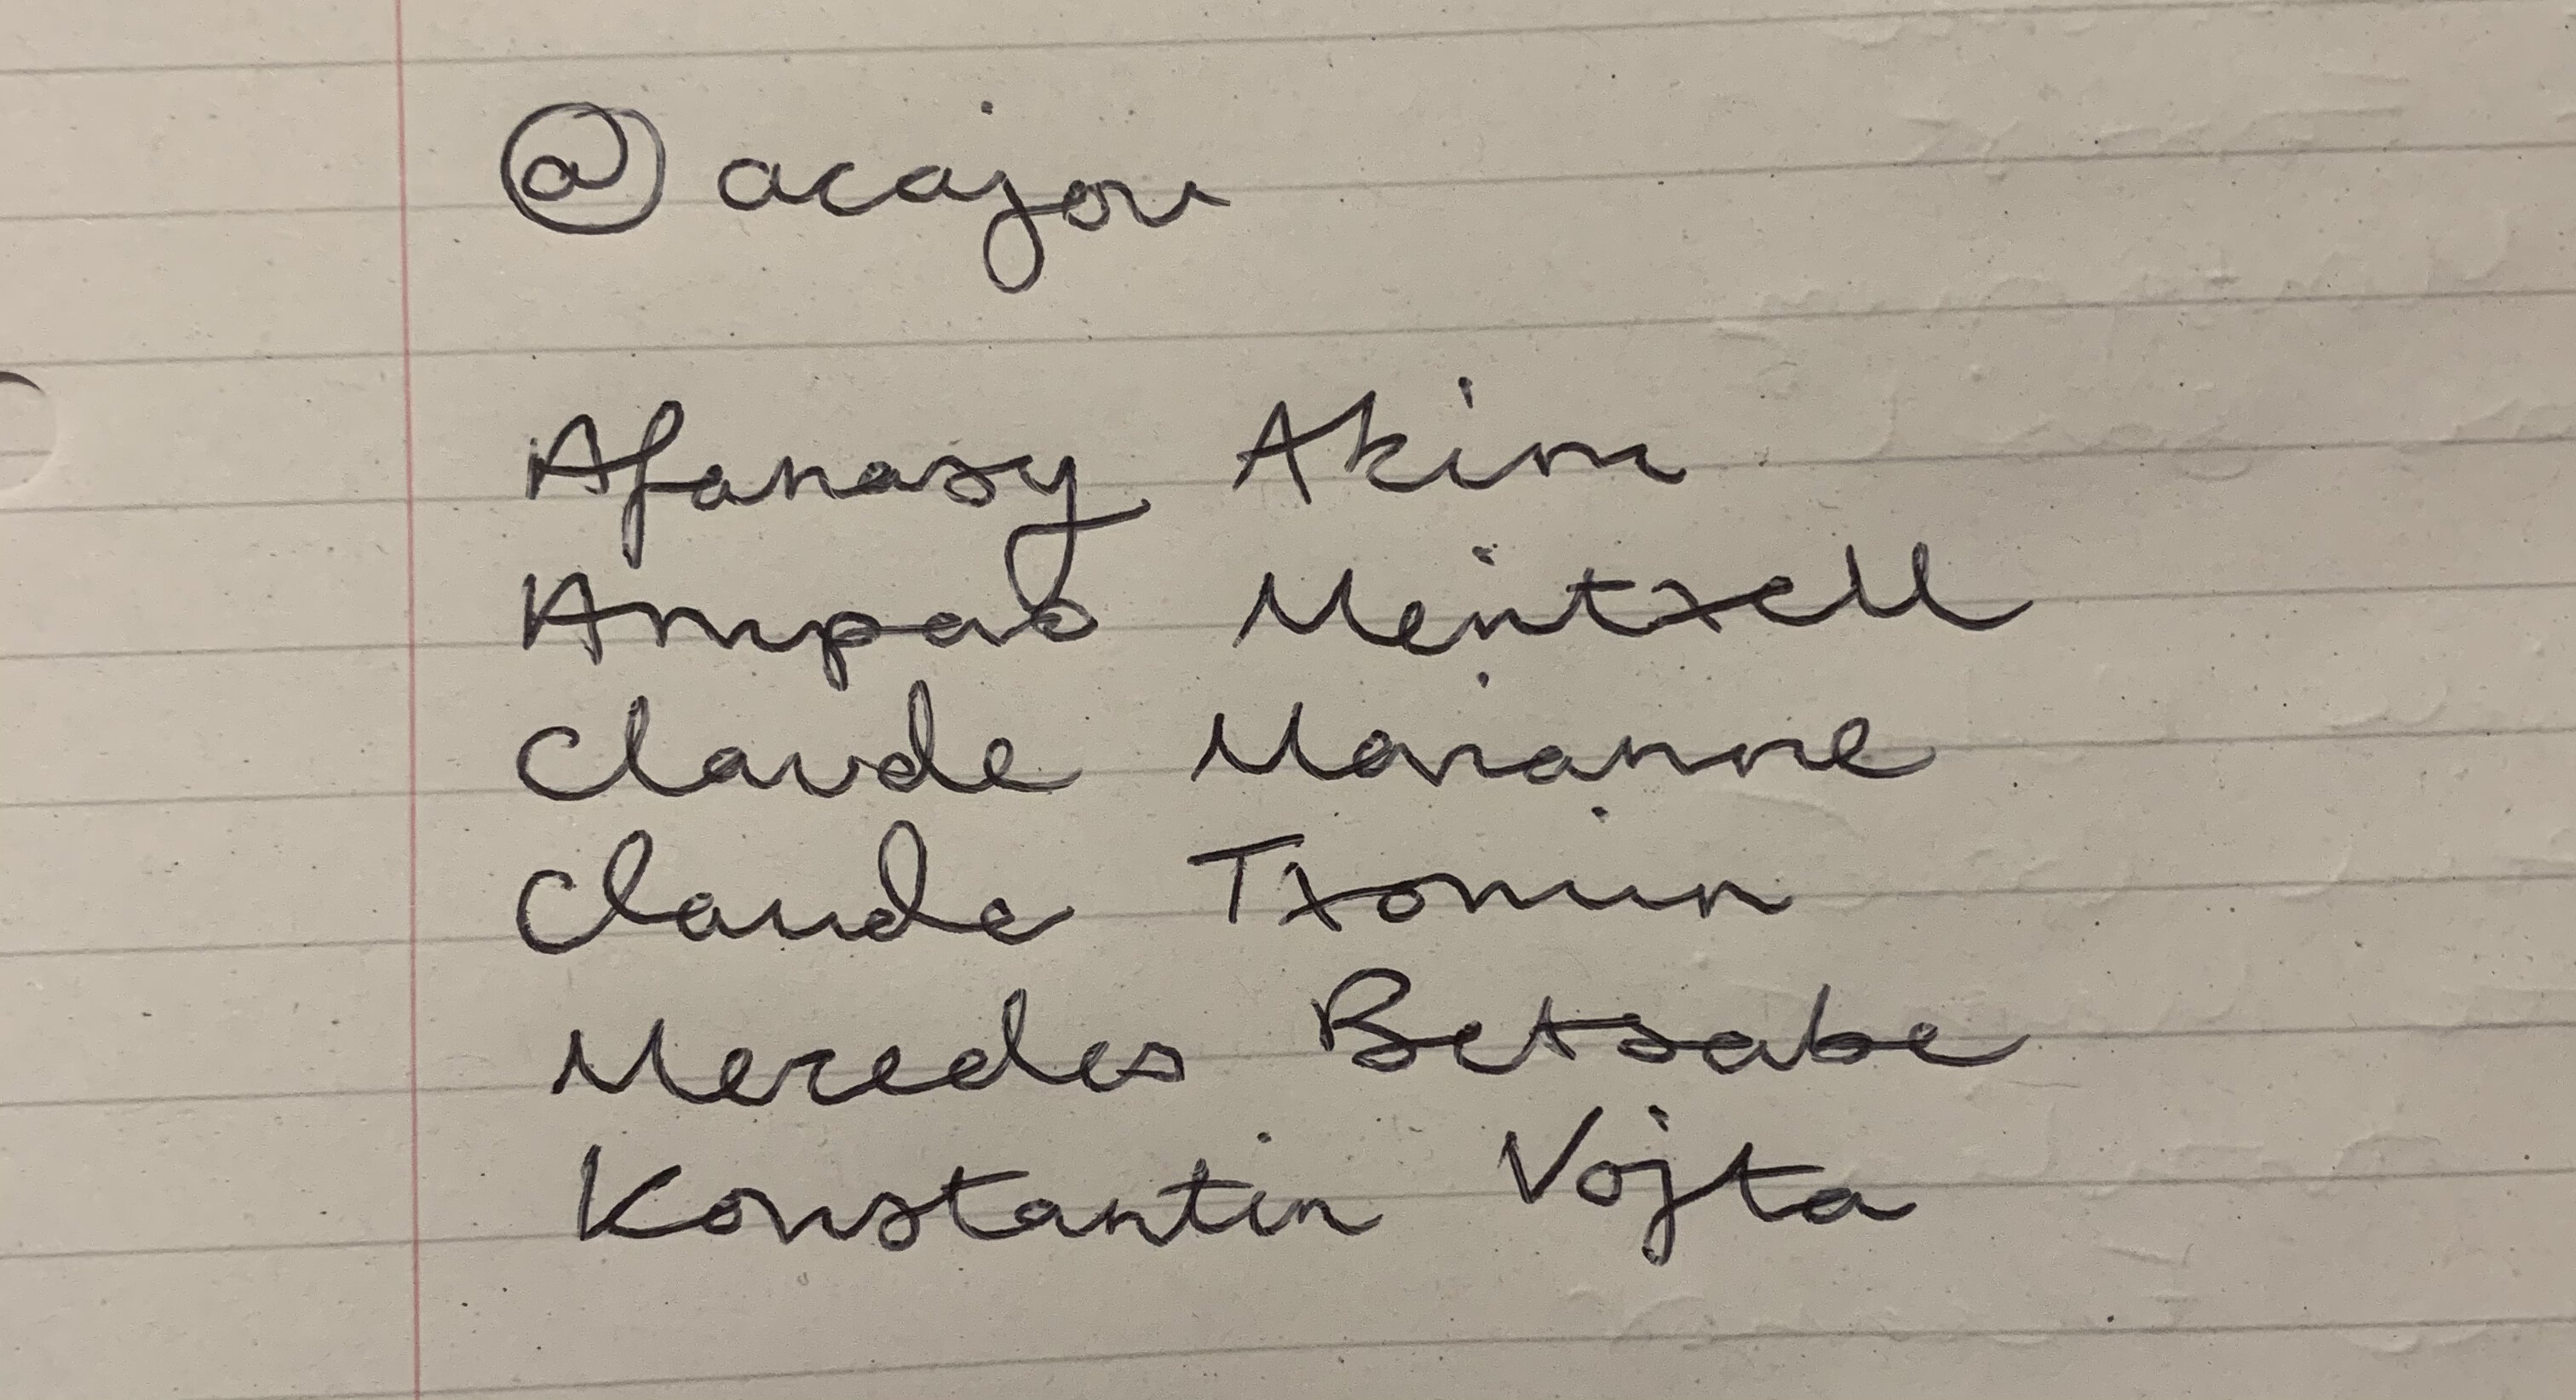 @acajou
Afanasy Akim
Amparo Meritxell
Claude Marianne
Claude Txomin
Mercedes Betsabe
Konstantin Vojta